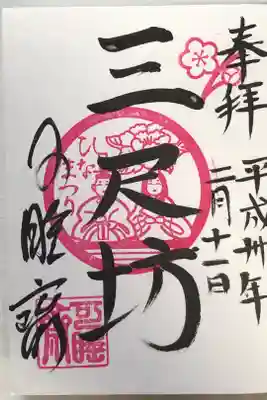 奉拝
平成卅年
二月十一日
三尺坊
ひな
まつり
可睡齋